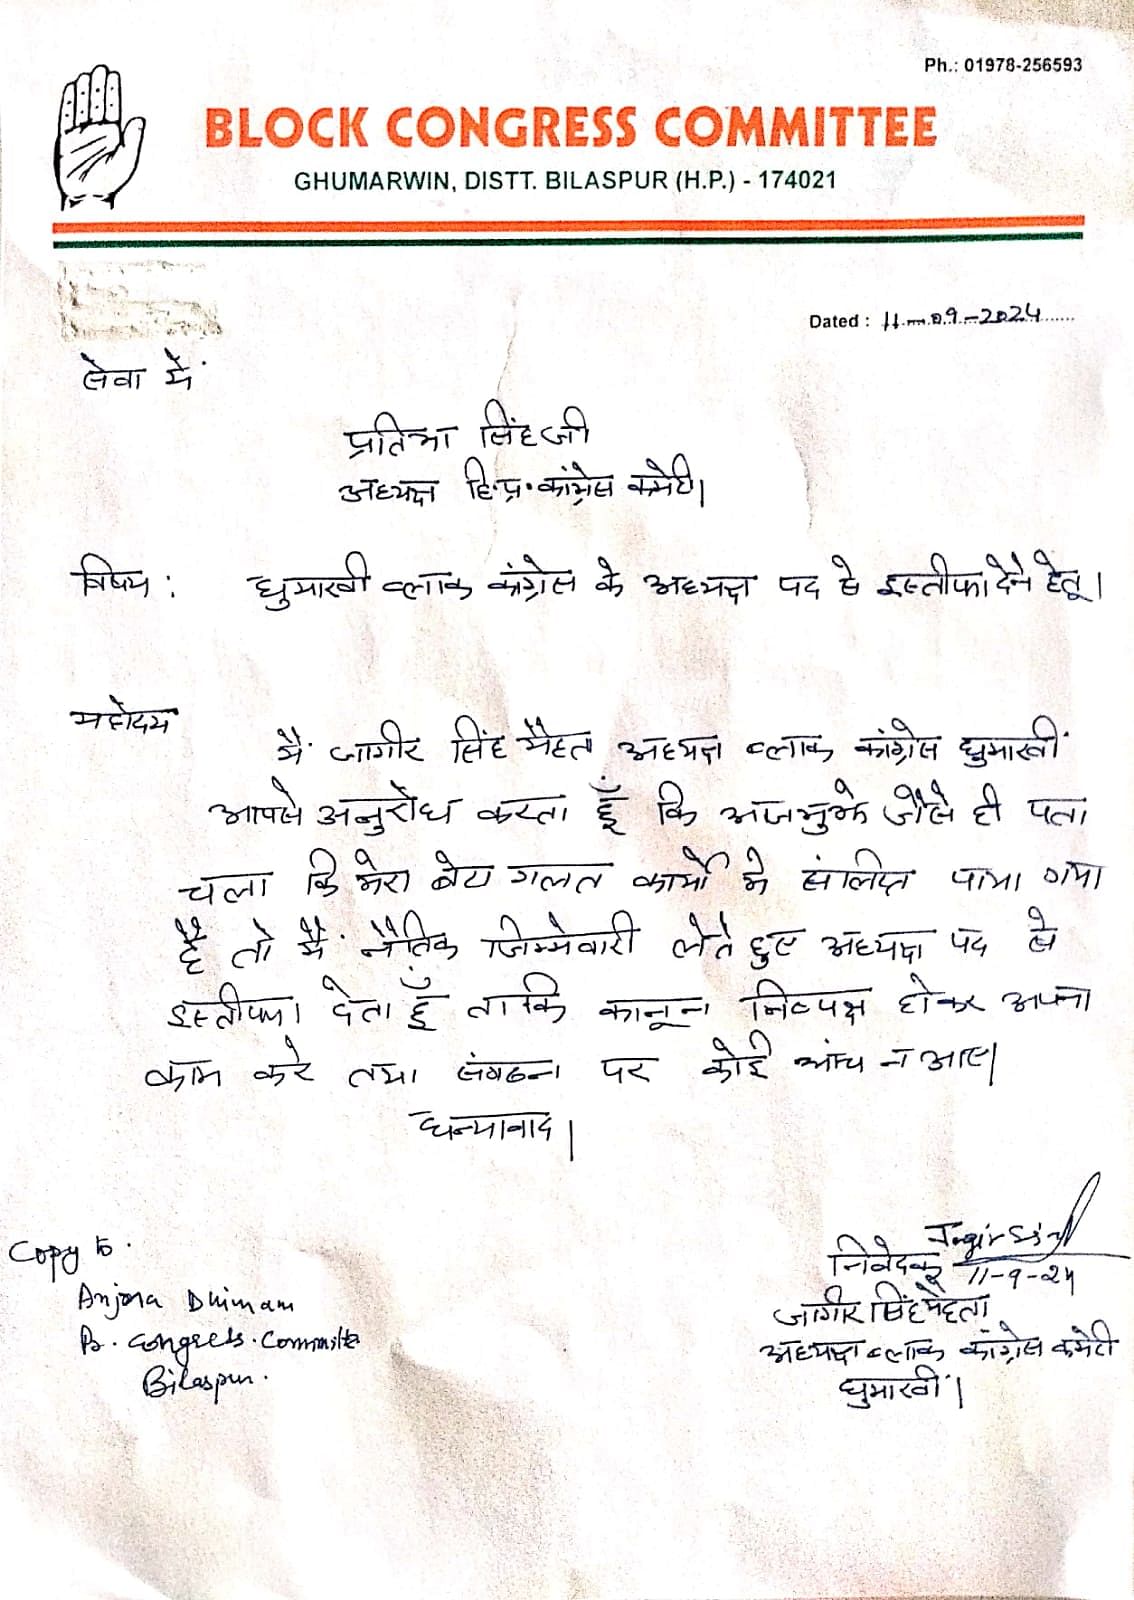 Ph.: 01978-256593
BLOCK CONGRESS COMMITTEE
GHUMARWIN, DISTT. BILASPUR (H.P.) - 174021
Dated : 11-09-2024
सेवा में
प्रतिभा सिंह जी
अध्यक्ष हि.प्र. कांग्रेस कमेटी।
विषय : घुमारवीं ब्लाक कांग्रेस के अध्यक्ष पद से इस्तीफा देने हेतू।
महोदय
मैं जागीर सिंह मैहता अध्यक्ष ब्लाक कांग्रेस घुमारवीं
आपसे अनुरोध करता हूँ कि आज मुझे जैसे ही पता
चला कि मेरा बेटा गलत कार्यों मे संलिप्त पाया गया
है तो मैं नैतिक जिम्मेवारी लेते हुए अध्यक्ष पद से
इस्तीफा देता हूँ ताकि कानून निष्पक्ष होकर अपना
काम करे तथा संगठन पर कोई आंच न आए।
धन्यावाद।
Jagir Singh
निवेदक 11-9-24
जागीर सिंह मैहता
अध्यक्ष ब्लाक कांग्रेस कमेटी
घुमारवीं।
Copy to.
Anjana Dhiman
Congress. Committee
Bilaspur.